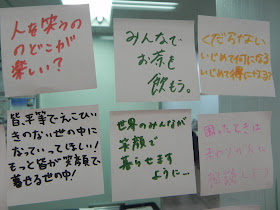 人を笑うの
のどこが
楽しい？
みんなで
お茶を
飲もう。
くだらない
いじめて何になる
いじめて得になる？
皆、平等でえこひい
きのない世の中に
なっていってほしい！
もっと皆が笑顔で
暮せる世の中!
世界のみんなが
笑顔で
暮らせます
ように…
困ったときは
まわりの人に
相談しよう